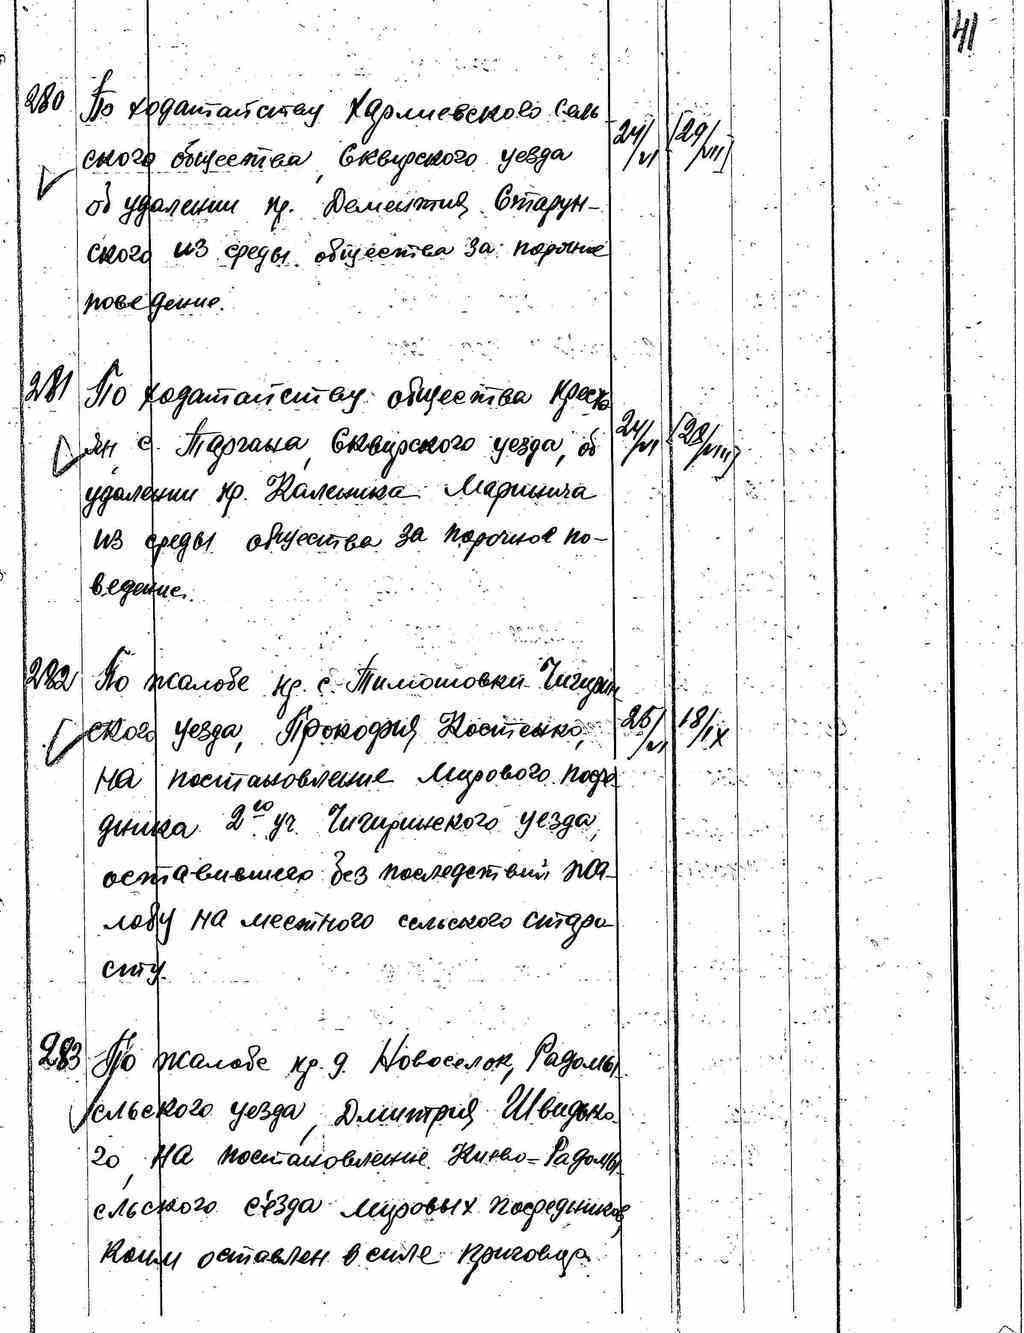 41
280 По ходатайству Харлиевского сель-
ского общества, Сквирского уезда 24/VI [29/VIII]
об удалении кр. Дементия Старун-
ского из среды общества за порочное
поведение.
281 По ходатайству общества кресть-
ян с. Таргана, Сквирского уезда, об 24/VI [28/VIII]
удалении кр. Каленика Маринича
из среды общества за порочное по-
ведение.
282 По жалобе кр. с. Тимошовки Чигирин
ского уезда, Прокофия Костенко, 25/VI 18/IX
на постановление мирового посре-
дника 2го уч. Чигиринского уезда,
оставившего без последствий жа-
лобу на местного сельского старо-
сту.
283 По жалобе кр. д. Новоселок, Радомы-
сльского уезда, Дмитрия Швидько-
го, на постановление Киево-Радомы-
сльского съезда мировых посредников,
коим оставлен в силе приговор